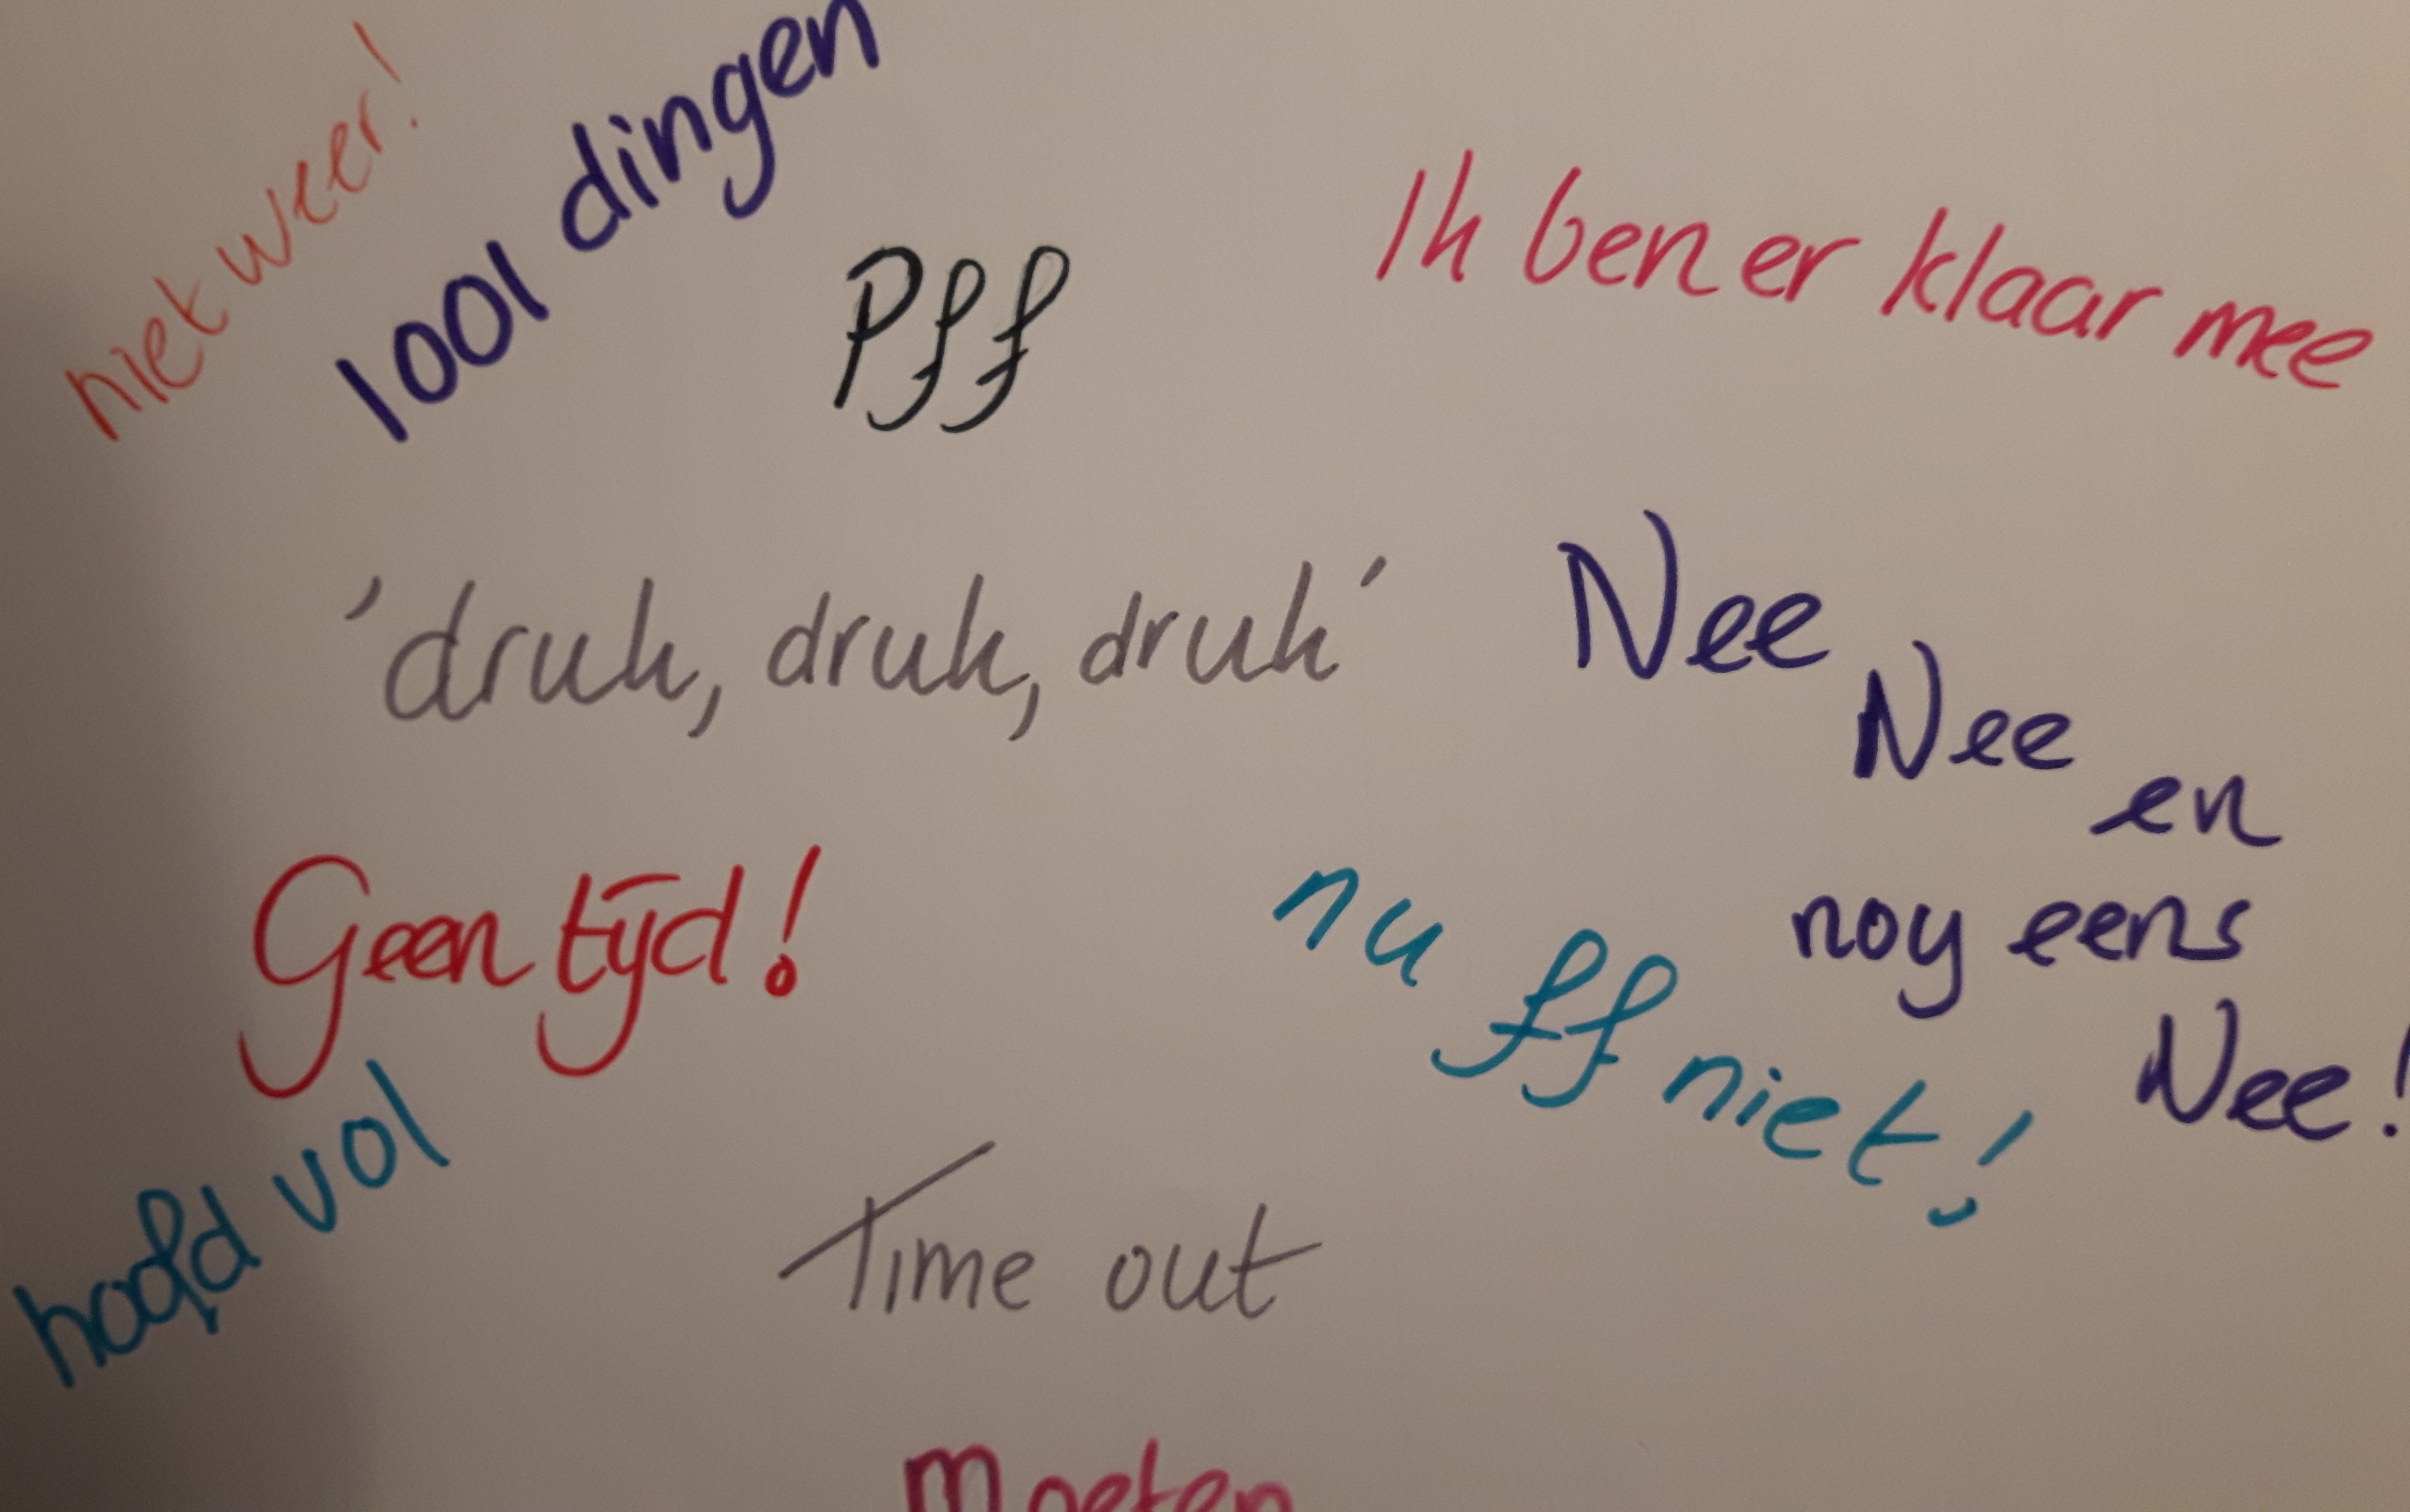 niet weer!
1001 dingen
Pff
Ik ben er klaar mee
'druk, druk, druk'
Nee
Nee
en
nog eens
Nee!
Geen tijd!
nu ff niet!
hoofd vol
Time out
Moeten